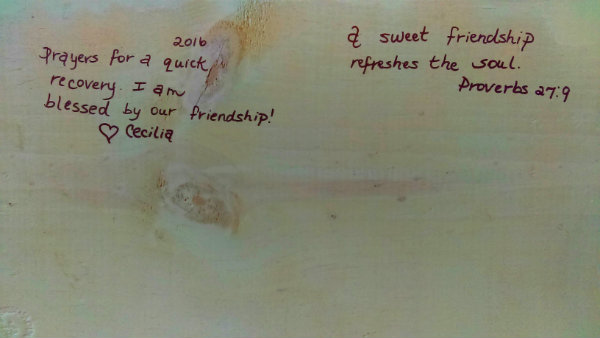 2016
Prayers for a quick
recovery. I am
blessed by our friendship!
♡ Cecilia
A sweet friendship
refreshes the soul.
Proverbs 27:9